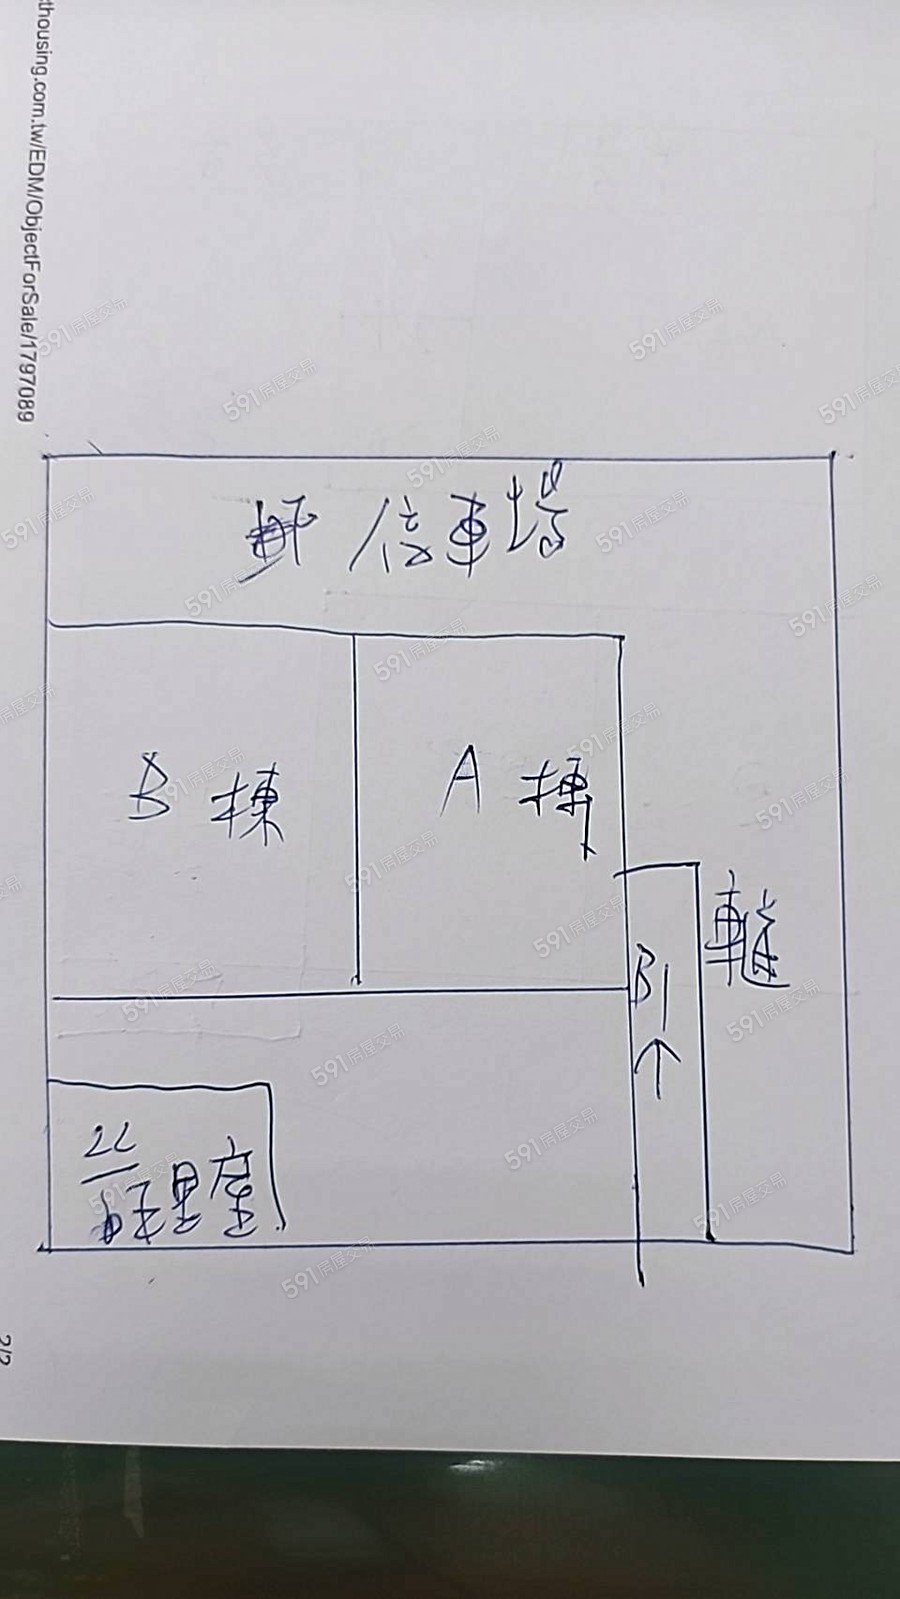 cthousing.com.tw/EDM/ObjectForSale/1797089
停車場
B棟
A棟
車道
B1
↑
警衛室
2/2
591房屋交易